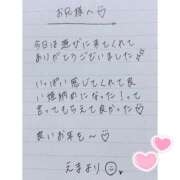 お兄様へ♡
今日は遊びに来てくれて
ありがとうございました♪
いっぱい感じてくれて良
い姫納めになった!って
言ってもらえて良かった♡
良いお年を〜♡
えまより☺